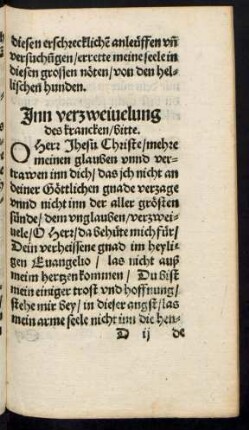 diesen erschrecklichẽ anleüffen vñ
versuchũgen/errette meine seele in
diesen grossen nöten/von den hel-
lischen hunden.
Inn verzweiuelung
des krancken/bitte.
O Herr Jhesu Christe/mehre
meinen glauben vnnd ver-
trawen inn dich/das ich nicht an
deiner Göttlichen gnade verzage
vnnd nicht inn der aller grösten
sünde/dem vnglauben/verzwei-
uele/O Herr/da behüte mich für/
Dein verheissene gnad im heyli-
gen Euangelio/las nicht auß
meim hertzen kommen/Du bist
mein einiger trost vnd hoffnung/
stehe mir bey/in dieser angst/las
mein arme seele nicht inn die hen-
D ij de